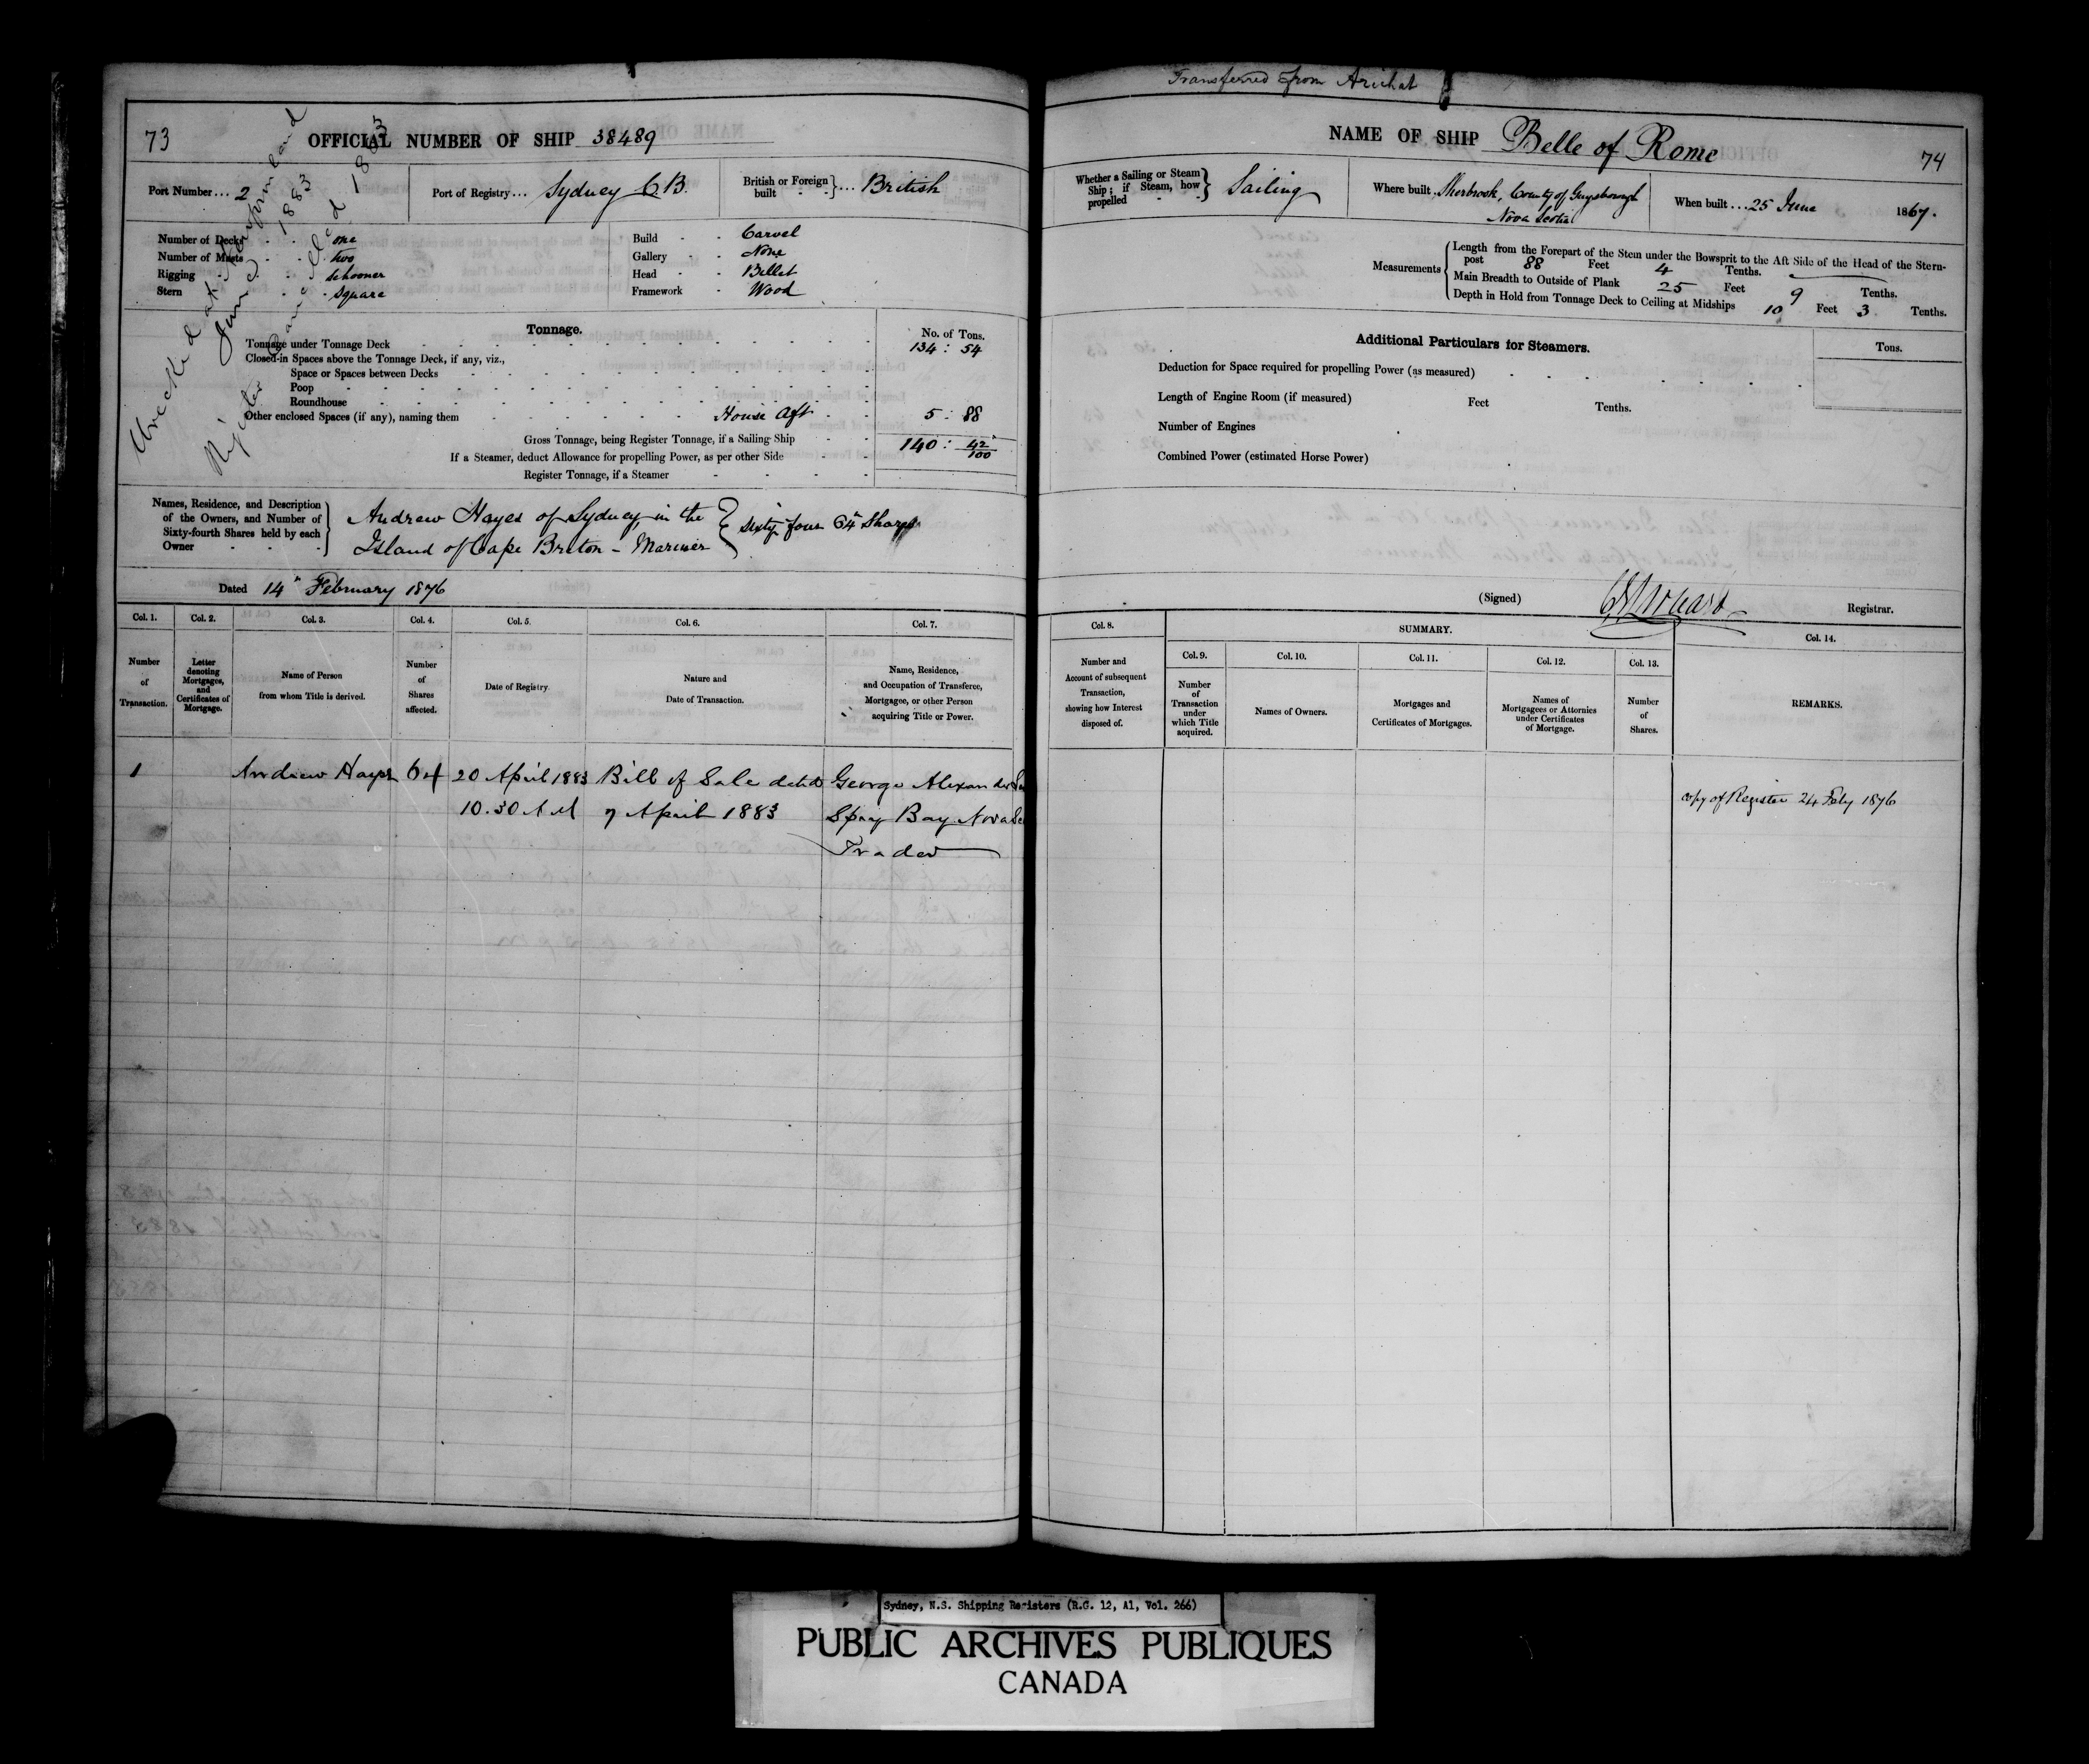 Transferred from Arichat
73
OFFICIAL NUMBER OF SHIP 38489
Port Number... 2
Port of Registry... Sydney C.B.
British or Foreign built } ... British
Number of Decks one
Number of Masts two
Rigging schooner
Stern square
Build Carvel
Gallery None
Head Billet
Framework Wood
Wrecked at Newfoundland
June 1883
Register Cancelled 1883
Tonnage.
No. of Tons.
Tonnage under Tonnage Deck 134 : 54
Closed-in Spaces above the Tonnage Deck, if any, viz.,
Space or Spaces between Decks
Poop
Roundhouse
Other enclosed Spaces (if any), naming them House Aft 5 : 88
Gross Tonnage, being Register Tonnage, if a Sailing Ship 140 : 42/100
If a Steamer, deduct Allowance for propelling Power, as per other Side
Register Tonnage, if a Steamer
Names, Residence, and Description of the Owners, and Number of Sixty-fourth Shares held by each Owner
Andrew Hayes of Sydney in the
Island of Cape Breton - Mariner
} Sixty four 64th Shares
Dated 14" February 1876
Col. 1. Col. 2. Col. 3. Col. 4. Col. 5. Col. 6. Col. 7.
Number of Transaction.
Letter denoting Mortgages, and Certificates of Mortgage.
Name of Person from whom Title is derived.
Number of Shares affected.
Date of Registry.
Nature and Date of Transaction.
Name, Residence, and Occupation of Transferee, Mortgagee, or other Person acquiring Title or Power.
1 Andrew Hayes 64 20 April 1883 Bill of Sale dated George Alexander
10.30 AM 7 April 1883 Spry Bay Nova
Trader
NAME OF SHIP Belle of Rome
74
Whether a Sailing or Steam Ship; if Steam, how propelled } Sailing
Where built Sherbrook, County of Guysborough
Nova Scotia
When built ... 25 June 1867.
Measurements
Length from the Forepart of the Stem under the Bowsprit to the Aft Side of the Head of the Stern-
post 88 Feet 4 Tenths.
Main Breadth to Outside of Plank 25 Feet 9 Tenths.
Depth in Hold from Tonnage Deck to Ceiling at Midships 10 Feet 3 Tenths.
Additional Particulars for Steamers.
Tons.
Deduction for Space required for propelling Power (as measured)
Length of Engine Room (if measured) Feet Tenths.
Number of Engines
Combined Power (estimated Horse Power)
(Signed) Registrar.
Col. 8.
SUMMARY.
Col. 14.
Col. 9. Col. 10. Col. 11. Col. 12. Col. 13.
Number and Account of subsequent Transaction, showing how Interest disposed of.
Number of Transaction under which Title acquired.
Names of Owners.
Mortgages and Certificates of Mortgages.
Names of Mortgagees or Attornies under Certificates of Mortgage.
Number of Shares.
REMARKS.
copy of Register 24 Feby 1876
Sydney, N.S. Shipping Registers (R.G. 12, A1, Vol. 266)
PUBLIC ARCHIVES PUBLIQUES
CANADA